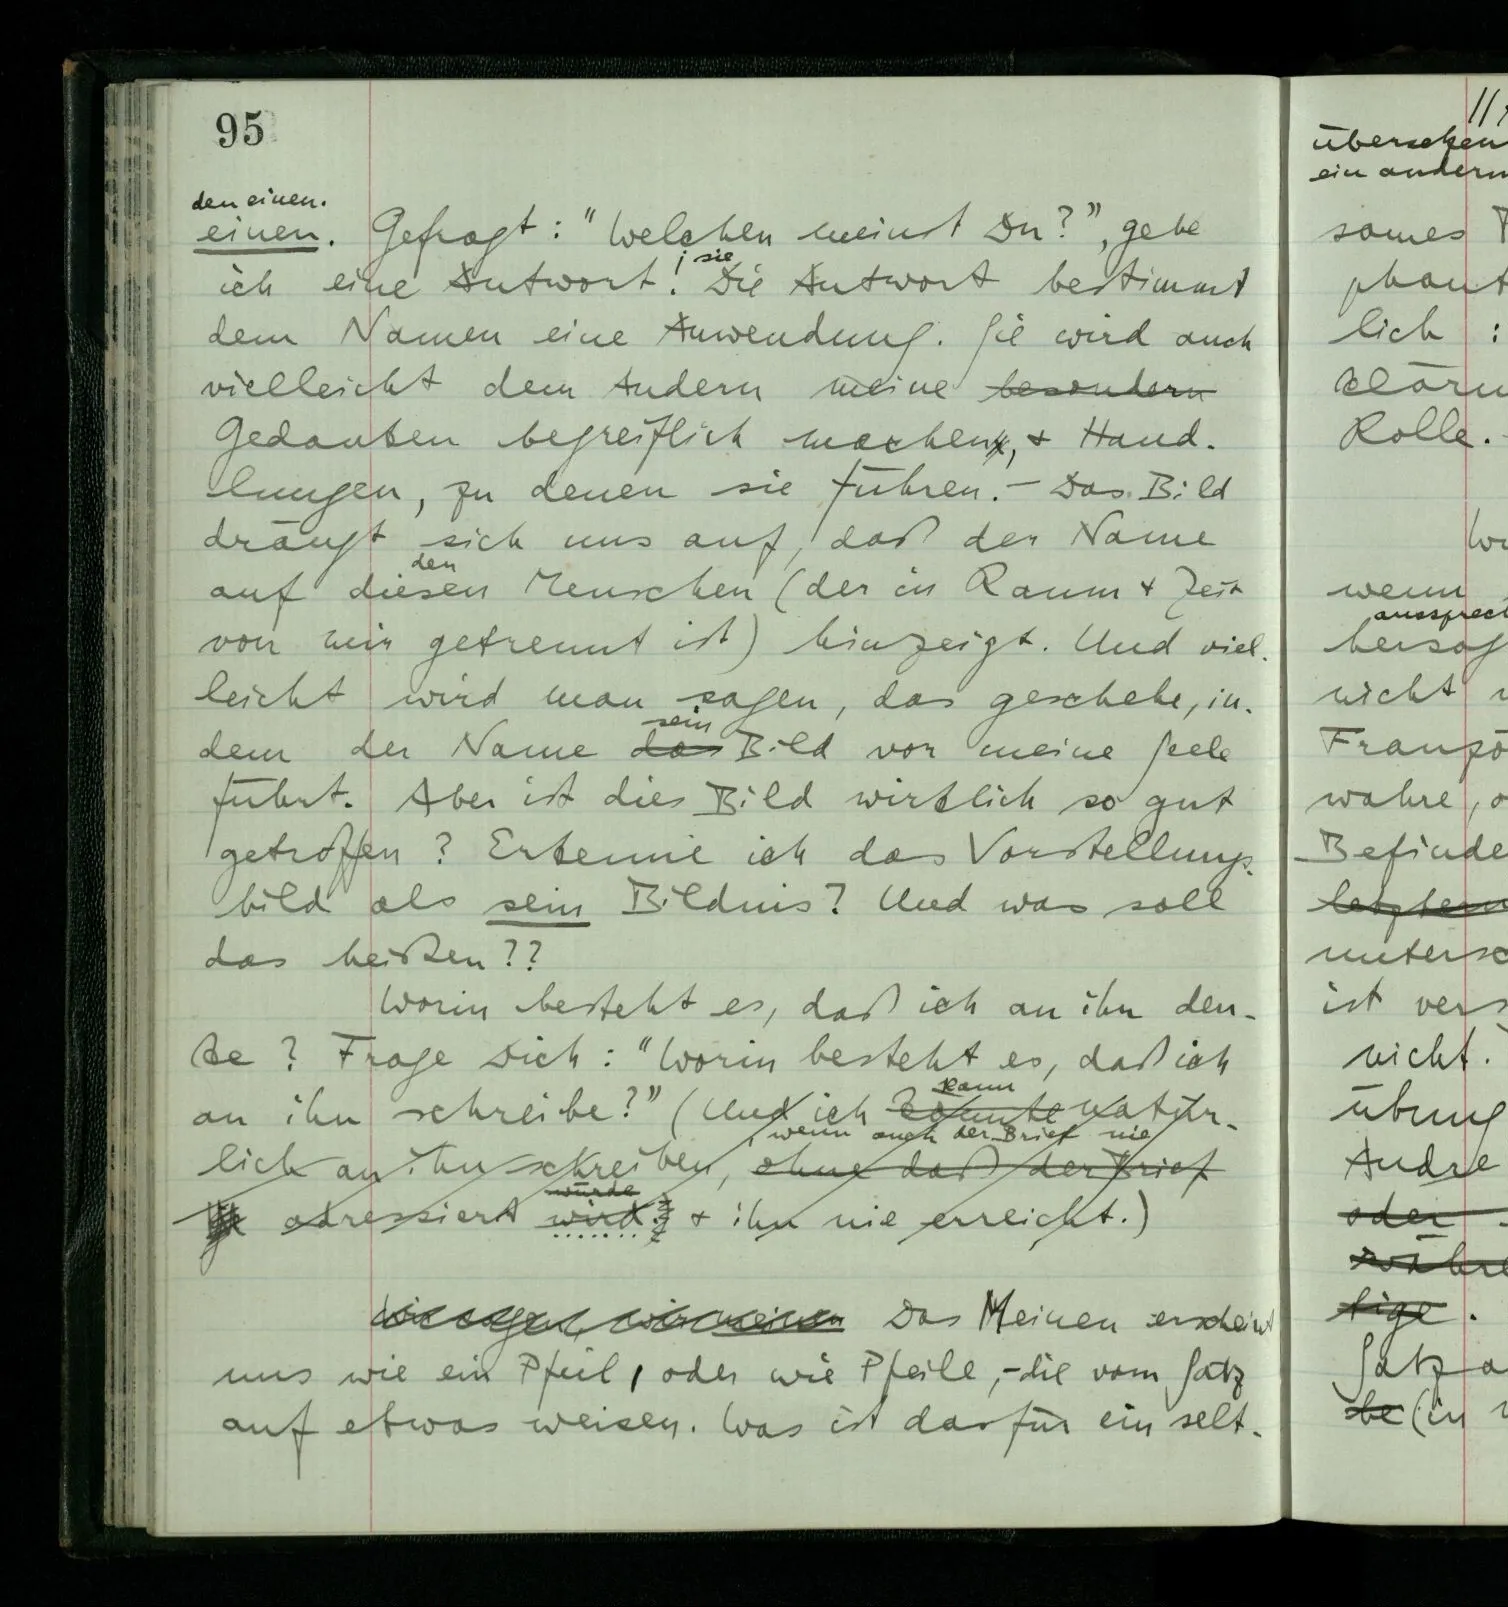 95
den einen.
einen. Gefragt: "Welchen meinst Du?", gebe
; sie
ich eine Antwort! Die Antwort bestimmt
dem Namen eine Anwendung. Sie wird auch
vielleicht dem Andern meine besondern
Gedanken begreiflich machen, & Hand-
lungen, zu denen sie führen. – Das Bild
drängt sich uns auf, daß der Name
den
auf diesen Menschen (der in Raum & Zeit
von mir getrennt ist) hinzeigt. Und viel-
leicht wird man sagen, das geschehe, in-
sein
dem der Name das Bild vor meine Seele
führt. Aber ist dies Bild wirklich so gut
getroffen? Erkenne ich das Vorstellungs-
bild als sein Bildnis? Und was soll
das heißen??
Worin besteht es, daß ich an ihn den-
ke? Frage Dich: "Worin besteht es, daß ich
kann
an ihn schreibe?" (Und ich könnte natür-
, wenn auch der Brief nie
lich an ihn schreiben, ohne daß der Brief
würde
adressiert wird & ihn nie erreicht.)
Wir sagen, wir meinen Das Meinen erscheint
uns wie ein Pfeil, oder wie Pfeile, – die vom Satz
auf etwas weisen. Was ist das für ein selt-
übersehen
ein andern
sames
phant
lich :
klären
Rolle. –
wenn
aussprech
hersag
nicht
Franzö
wahre,
Befinde
letztern
untersc
ist vers
nicht.
übung
Andre
oder
währe
tige.
Satz a
be (in